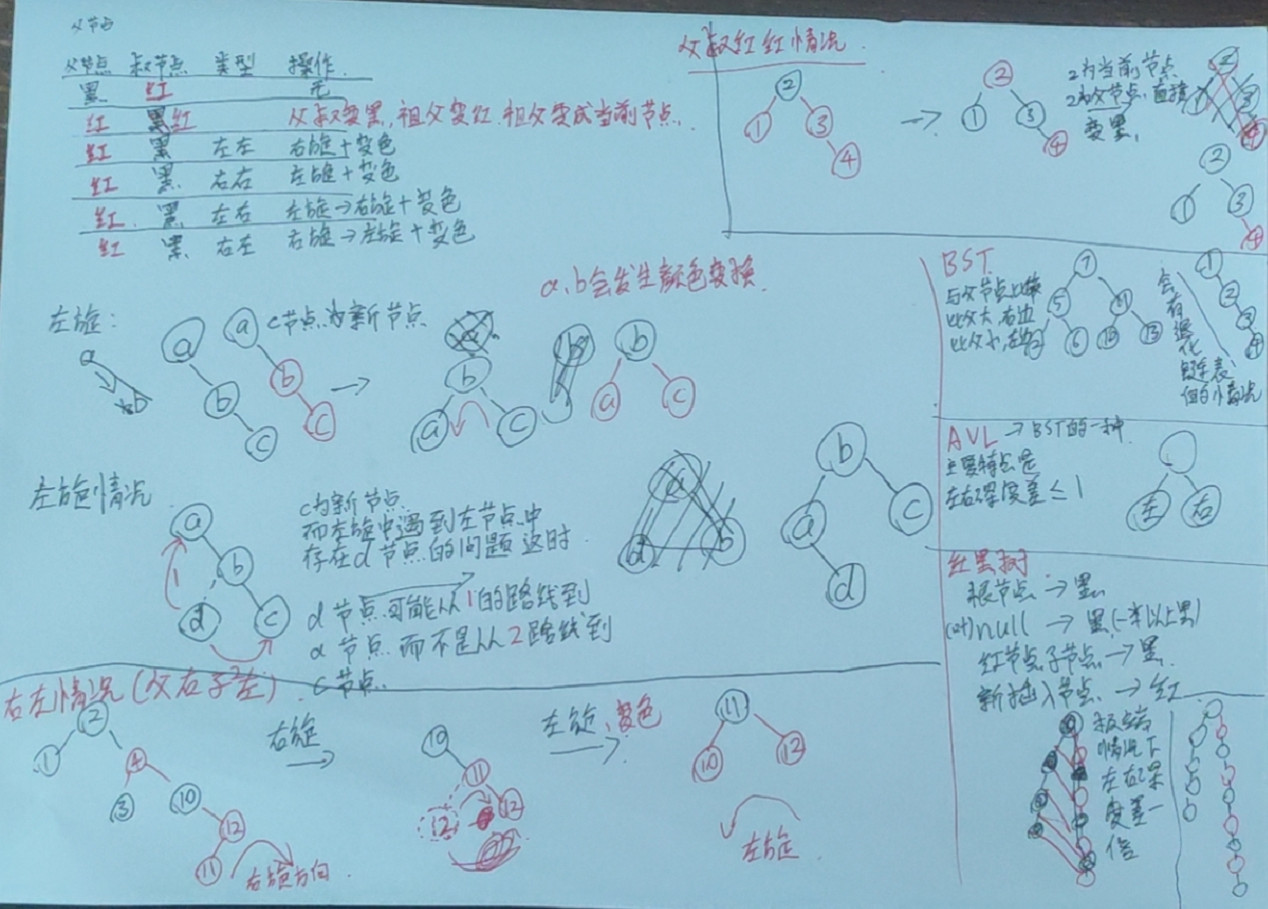 父节点
父节点 叔节点 类型 操作
黑 红 无
红 黑红 父叔变黑,祖父变红.祖父变成当前节点.
红 黑 左左 右旋+变色
红 黑 右右 左旋+变色
红 黑 左右 左旋→右旋+变色
红 黑 右左 右旋→左旋+变色
父叔红红情况.
2 1 3 4
→
2 1 3 4
2为当前节点
2为父节点,直接
变黑,
2 1 3 4
a、b会发生颜色变换
左旋:
a b
a b c
c节点为新节点
a b c
→
b a c
b a c
左旋情况
a b d c
1
c为新节点
而左旋中遇到左节点中
存在d节点的问题这时
d节点可能从1的路线到
a节点而不是从2路线到
c节点.
b a c d
右左情况(父右子左)
2 1 4 3 10 12 11
右旋方向.
右旋
→
10 11 12 12
左旋、变色
→
11 10 12
左旋.
BST
与父节点比较
比父大,右边
比父小,左边
7 5 11 6 13
会有退化
链表
的情况
1 2 3 4
AVL →BST的一种.
主要特点是
左右深度差≤1
左 右
红黑树
根节点→黑
null → 黑(一半以上黑)
红节点子节点→黑
新插入节点→红
极端
情况下
左右深
度差一
倍